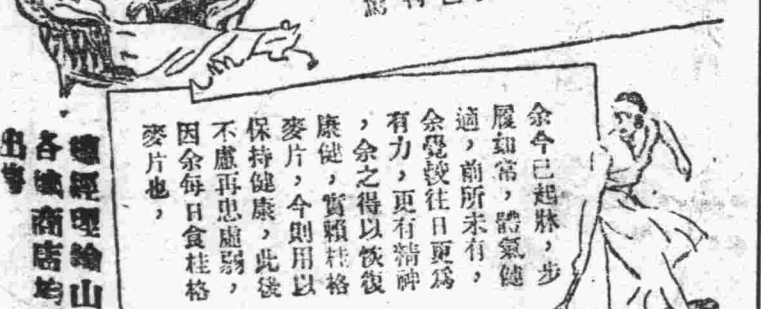 余今已起牀，步
履如常，體氣健
適，前所未有，
余覺較往日更爲
有力，更有精神
，余之得以恢復
康健，實賴桂格
麥片，今則用以
保持健康，此後
不慮再患虛弱，
因余每日食桂格
麥片也，
總經理綸山
各城商店均
出售